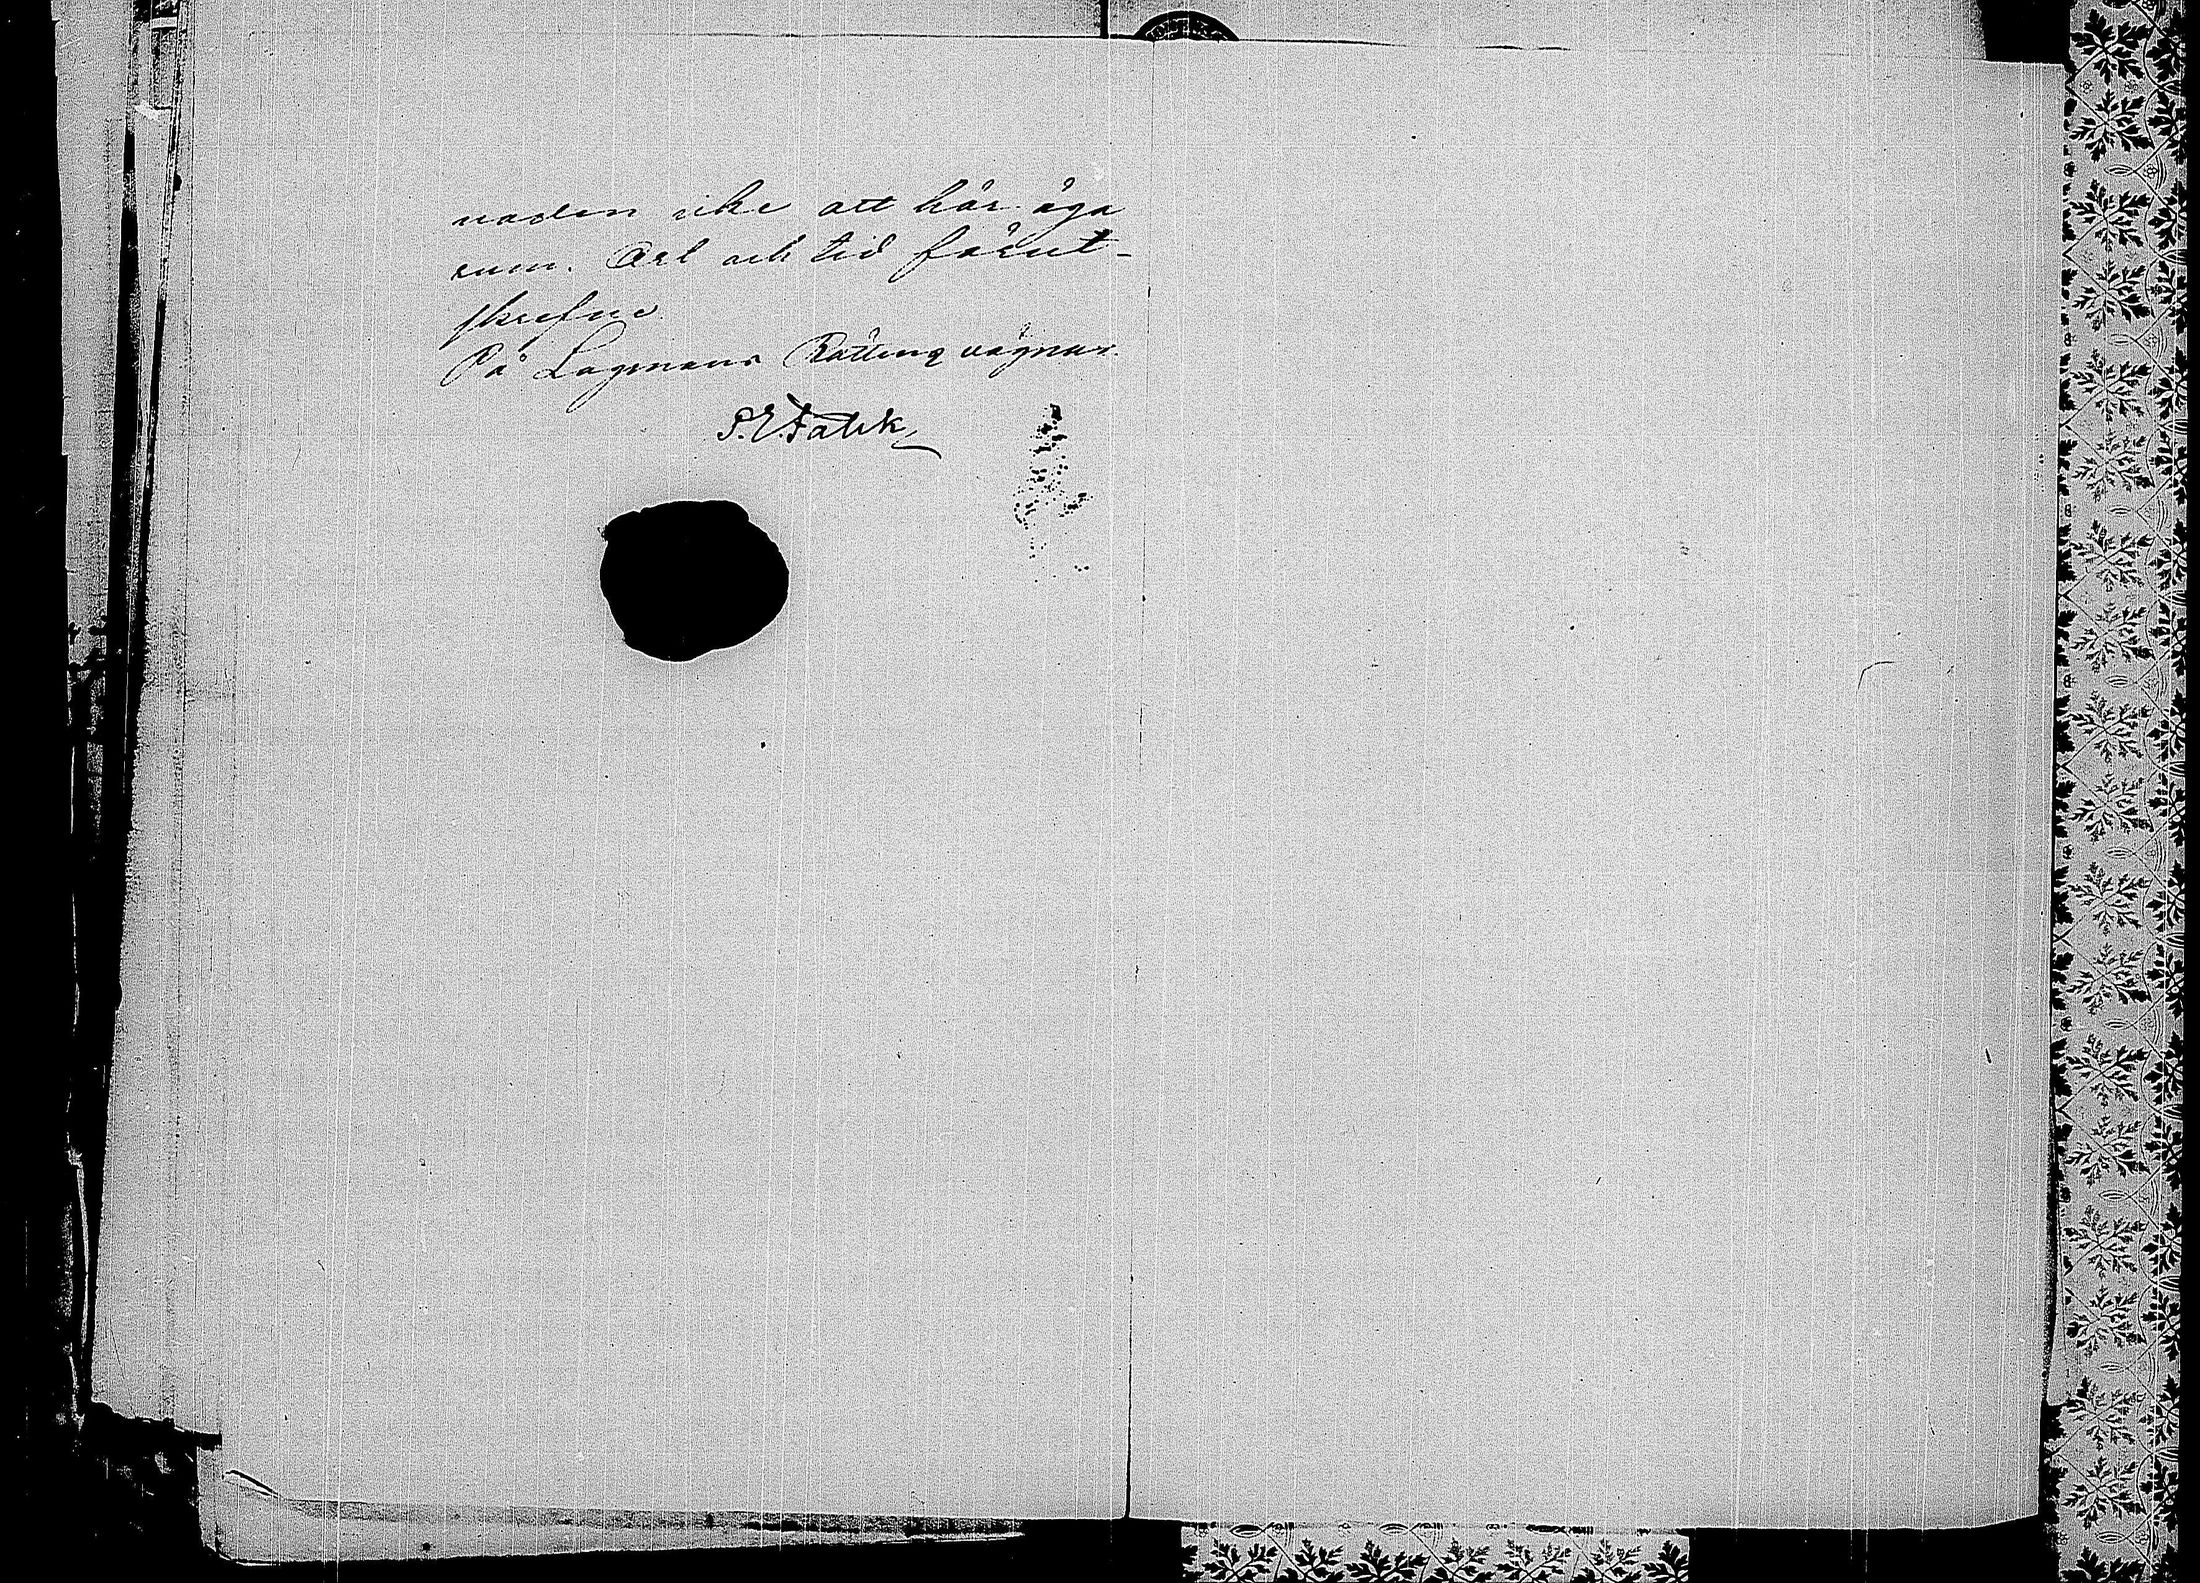 naden icke att här äga
rum. Ort och tid förut-
skrefne
På Lagmans Rättens vägnar.
P. E. Falck